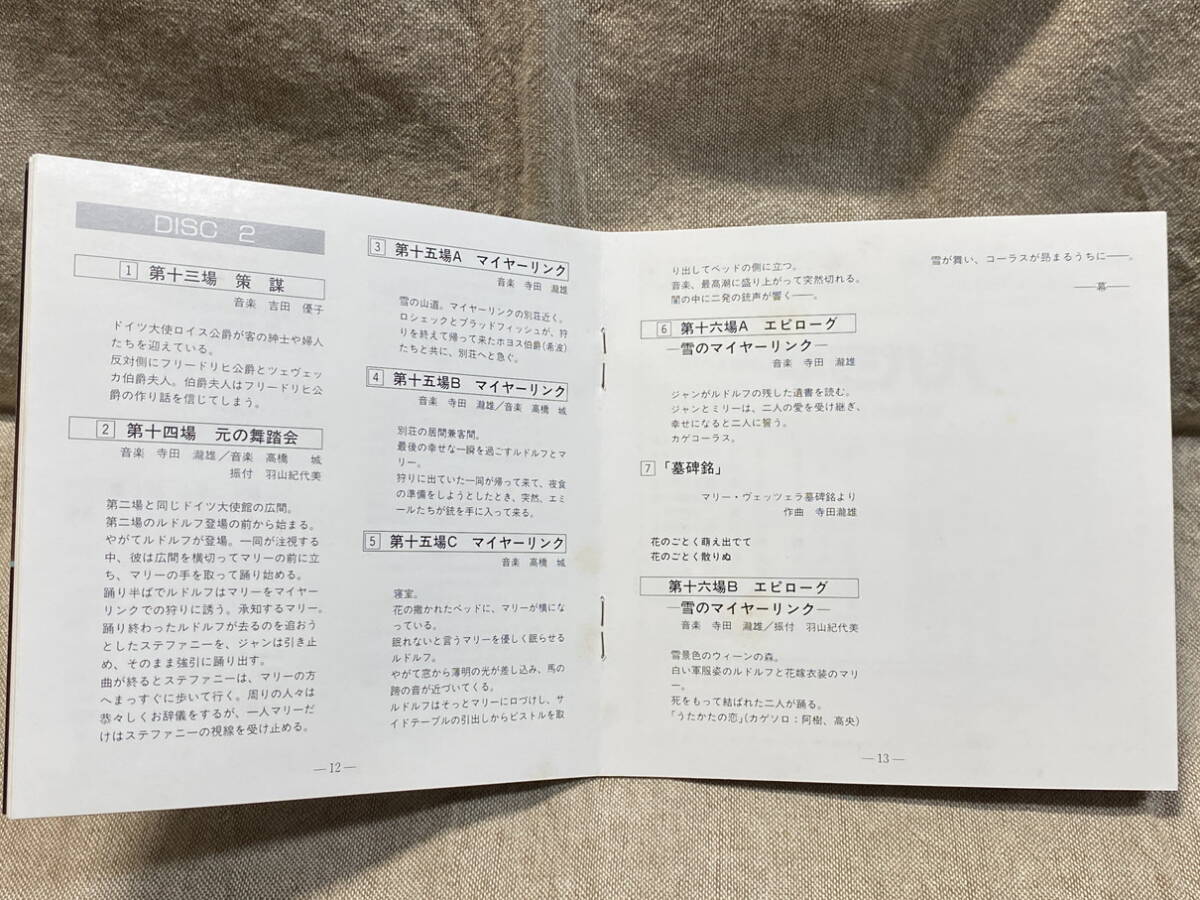 DISC 2
1 第十三場 策 謀
音楽 吉田 優子
ドイツ大使ロイス公爵が客の紳士や婦人
たちを迎えている。
反対側にフリードリヒ公爵とツェヴェッ
カ伯爵夫人。伯爵夫人はフリードリヒ公
爵の作り話を信じてしまう。
2 第十四場 元の舞踏会
音楽 寺田 瀧雄／音楽 高橋 城
振付 羽山紀代美
第二場と同じドイツ大使館の広間。
第二場のルドルフ登場の前から始まる。
やがてルドルフが登場。一同が注視する
中、彼は広間を横切ってマリーの前に立
ち、マリーの手を取って踊り始める。
踊り半ばでルドルフはマリーをマイヤー
リンクでの狩りに誘う。承知するマリー。
踊り終わったルドルフが去るのを追おう
としたステファニーを、ジャンは引き止
め、そのまま強引に踊り出す。
曲が終るとステファニーは、マリーの方
へまっすぐに歩いて行く。周りの人々は
恭々しくお辞儀をするが、一人マリーだ
けはステファニーの視線を受け止める。
3 第十五場A マイヤーリンク
音楽 寺田 瀧雄
雪の山道。マイヤーリンクの別荘近く。
ロシェックとブラッドフィッシュが、狩
りを終えて帰って来たホヨス伯爵(希波)
たちと共に、別荘へと急ぐ。
4 第十五場B マイヤーリンク
音楽 寺田 瀧雄／音楽 高橋 城
別荘の居間兼客間。
最後の幸せな一瞬を過ごすルドルフとマ
リー。
狩りに出ていた一同が帰って来て、夜食
の準備をしようとしたとき、突然、エミ
ールたちが銃を手に入って来る。
5 第十五場C マイヤーリンク
音楽 高橋 城
寝室。
花の撒かれたベッドに、マリーが横にな
っている。
眠れないと言うマリーを優しく眠らせる
ルドルフ。
やがて窓から薄明の光が差し込み、馬の
蹄の音が近づいてくる。
ルドルフはそっとマリーに口づけし、サ
イドテーブルの引出しからピストルを取
—12—
り出してベッドの側に立つ。
音楽、最高潮に盛り上がって突然切れる。
闇の中に二発の銃声が響く——。
6 第十六場A エピローグ
—雪のマイヤーリンク—
音楽 寺田 瀧雄
ジャンがルドルフの残した遺書を読む。
ジャンとミリーは、二人の愛を受け継ぎ、
幸せになると二人に誓う。
カゲコーラス。
7 「墓碑銘」
マリー・ヴェッツェラ墓碑銘より
作曲 寺田瀧雄
花のごとく萌え出でて
花のごとく散りぬ
第十六場B エピローグ
—雪のマイヤーリンク—
音楽 寺田 瀧雄／振付 羽山紀代美
雪景色のウィーンの森。
白い軍服姿のルドルフと花嫁衣装のマリ
ー。
死をもって結ばれた二人が踊る。
「うたかたの恋」(カゲソロ：阿樹、高央)
雪が舞い、コーラスが昂まるうちに——。
——幕——
—13—